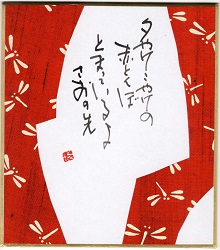 夕やけこやけの
赤とんぼ
とまっているよ
さおの先